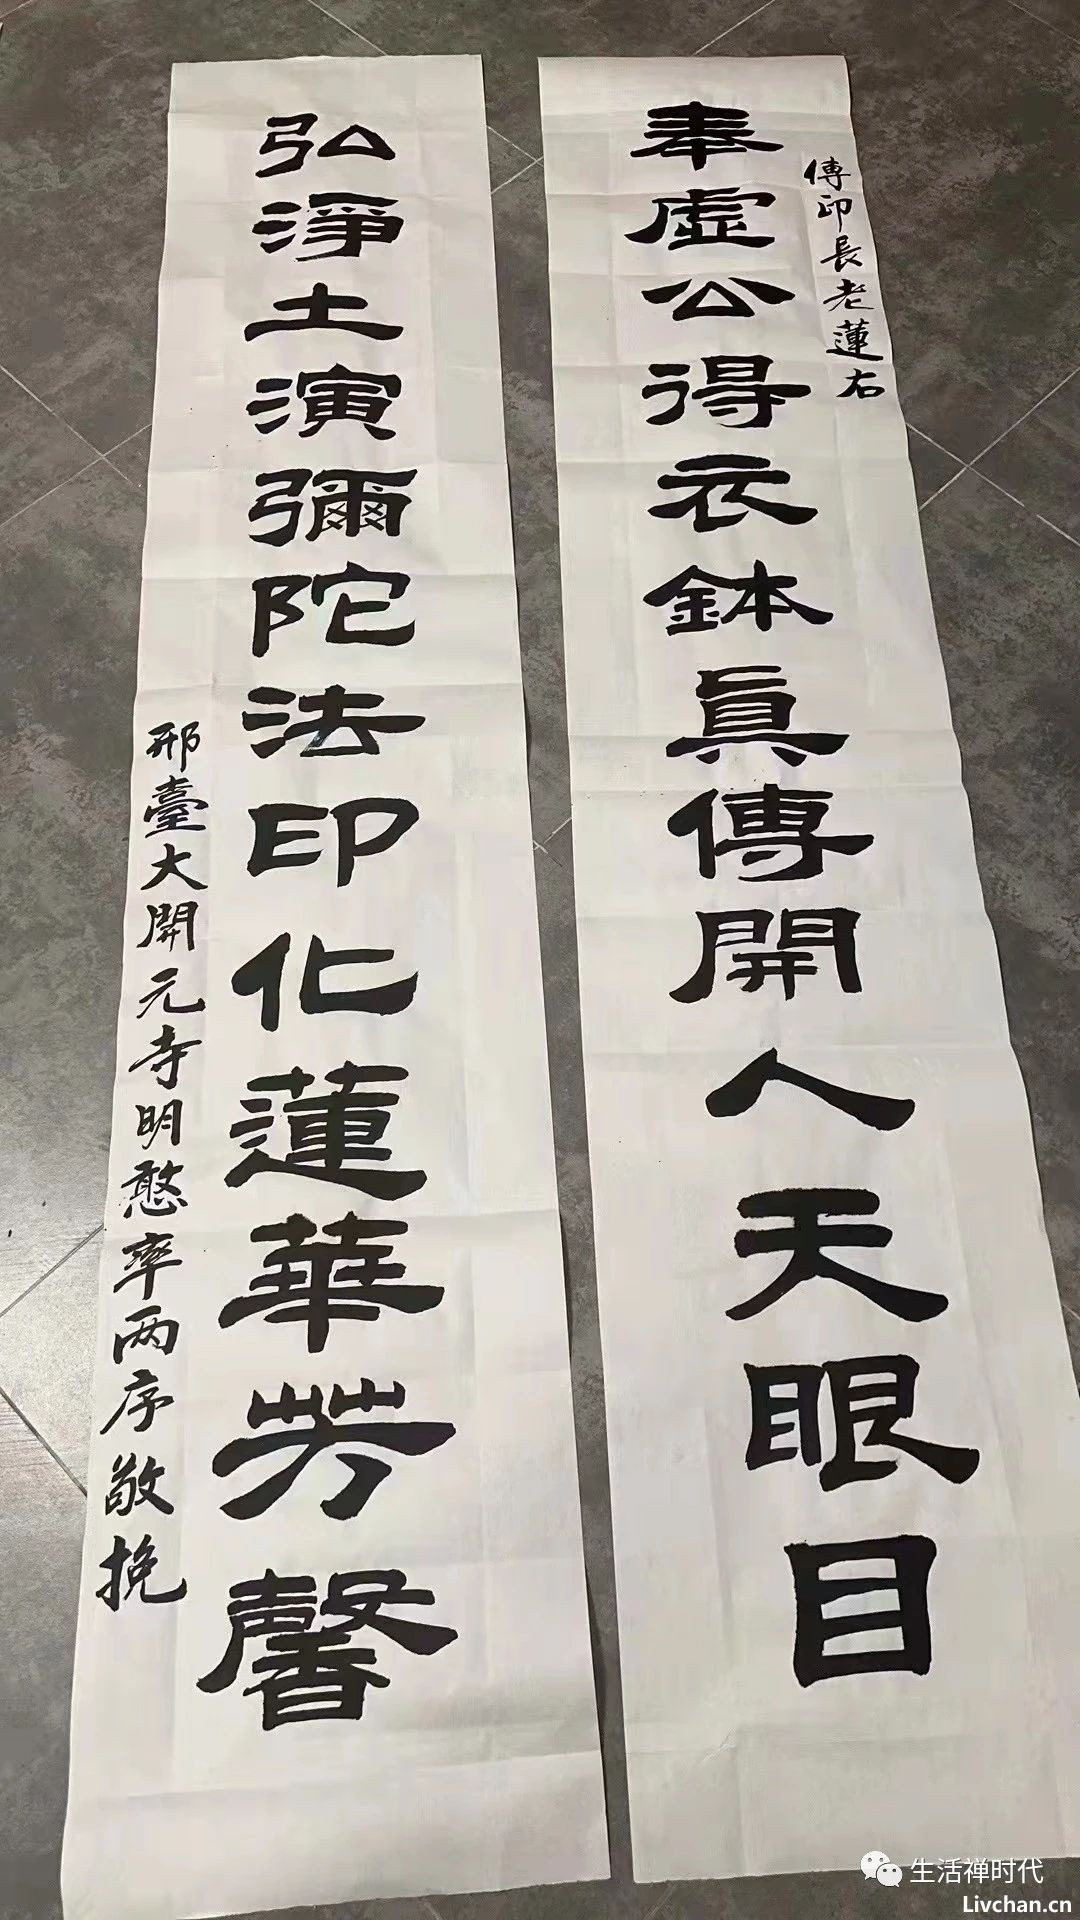 傳印長老蓮右
奉虛公得衣鉢眞傳開人天眼目
弘淨土演彌陀法印化蓮華芳馨
邢臺大開元寺明憨率两序敬挽
生活禅时代
Livchan.cn